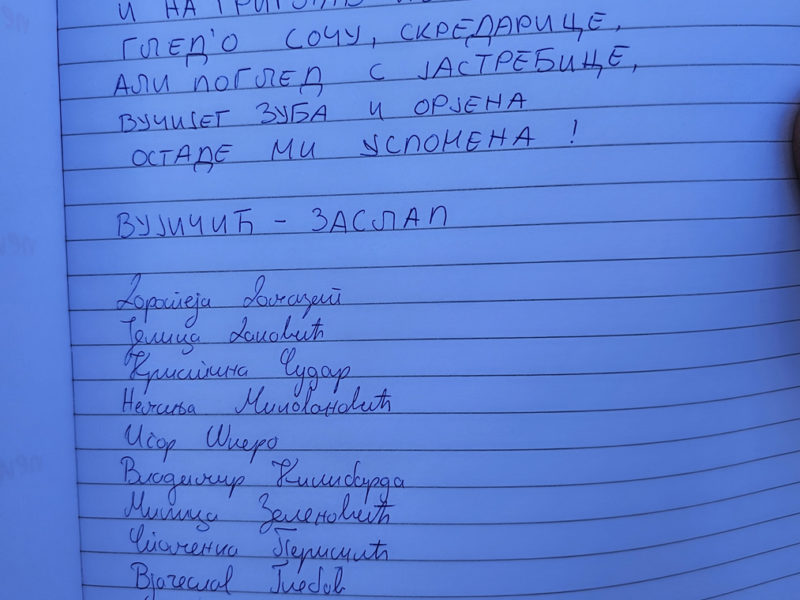 И НА
ГЛЕД'О СОЧУ, СКРЕДАРИЦЕ,
АЛИ ПОГЛЕД С ЈАСТРЕБИЦЕ,
ВУЧИЈЕГ ЗУБА И ОРЈЕНА
ОСТАДЕ МИ УСПОМЕНА!
ВУЈИЧИЋ - ЗАСЛАП
Доротеја
Јелица Даковић
Кристина Чудар
Немања Миловановић
Игор Шперо
Владимир Килибарда
Милица Зеленовић
Перишић
Вјачеслав Глебов